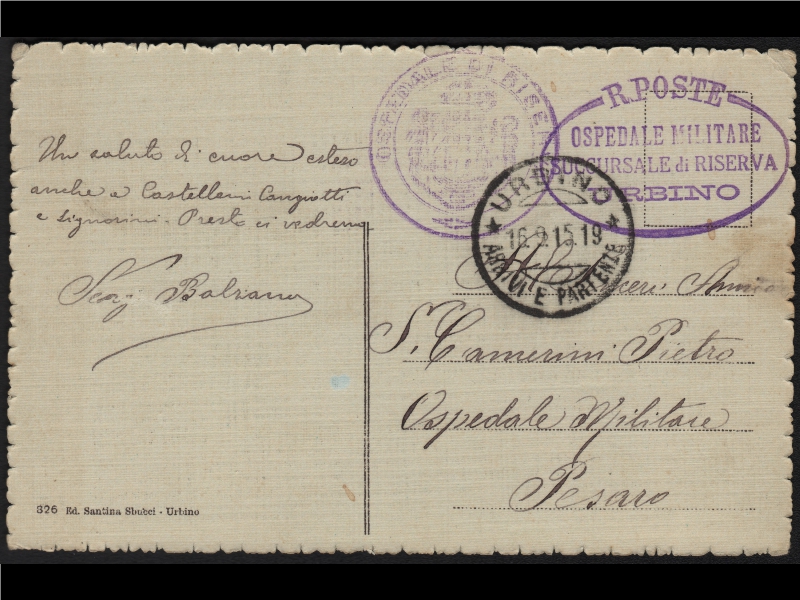 OSPEDALE DI RISER
R. POSTE
OSPEDALE MILITARE
SUCCURSALE di RISERVA
URBINO
URBINO
16.9.15.19
ARRIVI E PARTENZE
Un saluto di cuore esteso
anche a Castellani
e Signorini. Presto ci vedremo
Serg Balzano
S. Camerini Pietro
Ospedale Militare
Pesaro
326 Ed. Santina Sbucci - Urbino